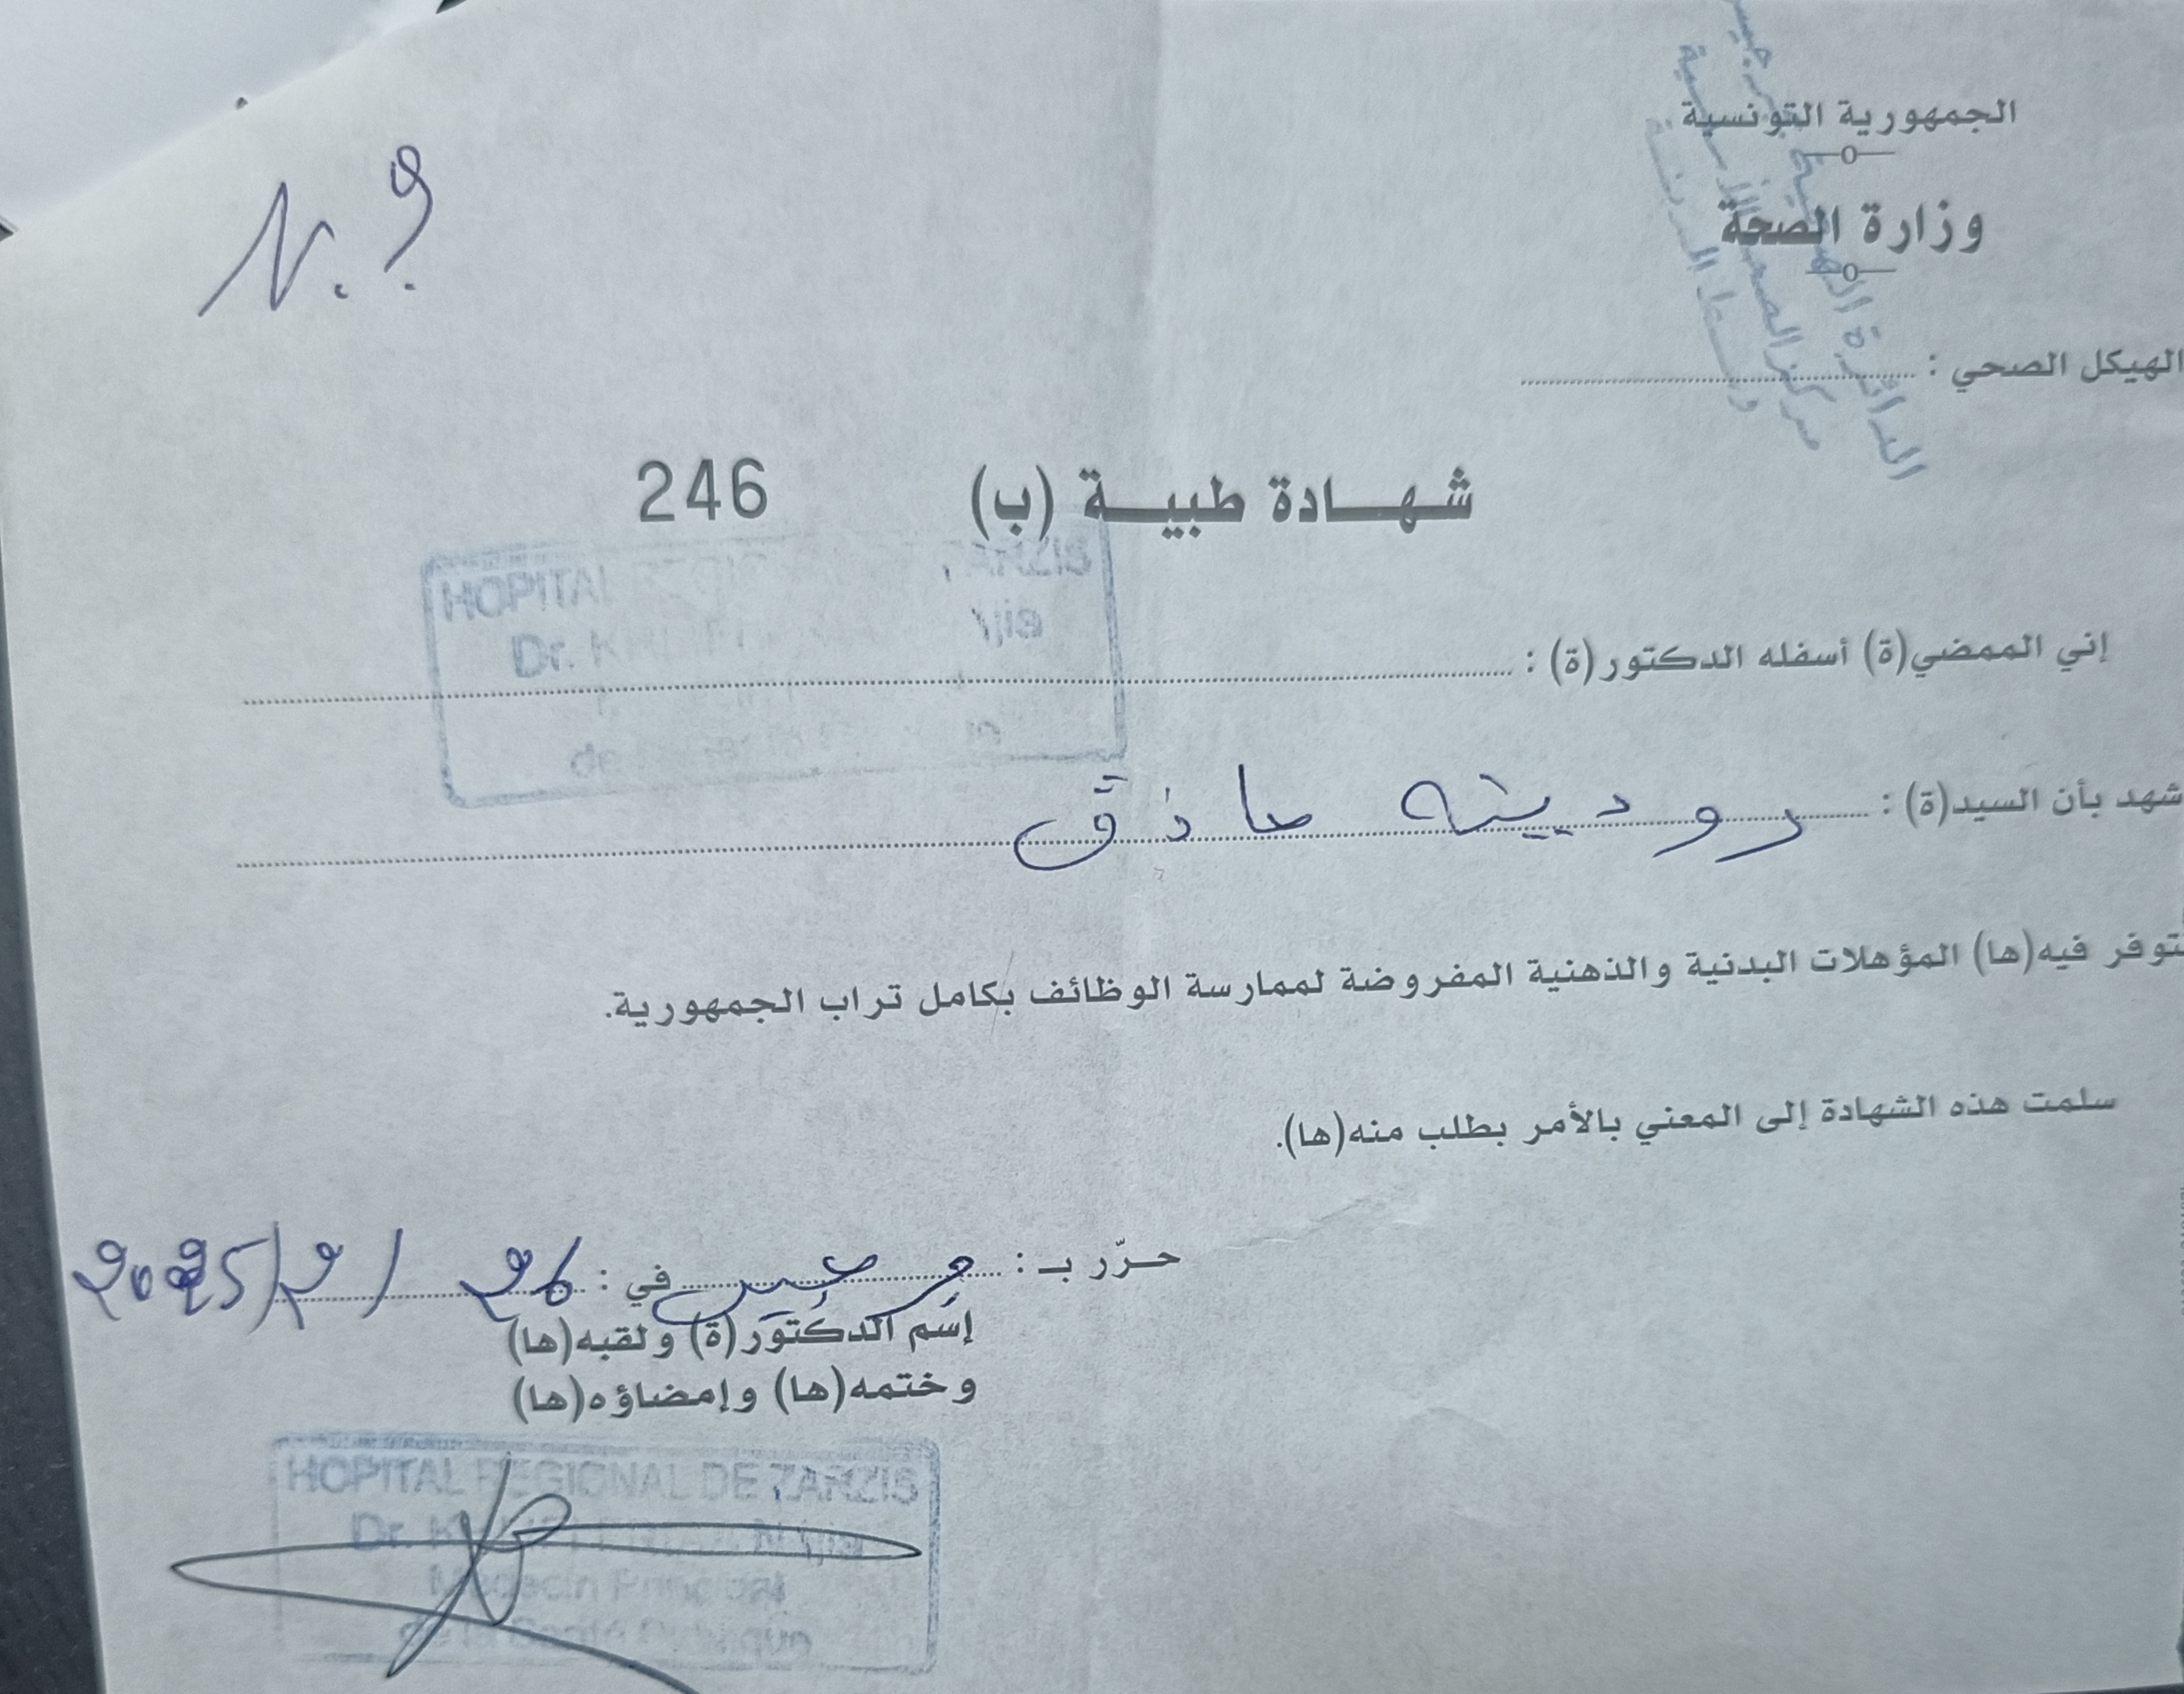 الجمهورية التونسية
وزارة الصحة
الهيكل الصحي :
شهادة طبية (ب) 246
HOPITAL ZARZIS
Dr.
إني الممضي(ة) أسفله الدكتور(ة) :
شهد بأن السيد(ة) : رودينه حاذق
تتوفر فيه(ها) المؤهلات البدنية والذهنية المفروضة لممارسة الوظائف بكامل تراب الجمهورية.
سلمت هذه الشهادة إلى المعني بالأمر بطلب منه(ها).
حرّر بـ : جرجيس في : 26 /2/2025
إسم الدكتور(ة) ولقبه(ها)
وختمه(ها) وإمضاؤه(ها)
HOPITAL REGIONAL DE ZARZIS
Dr. Njia
Medecin Principal
de la Santé Publique